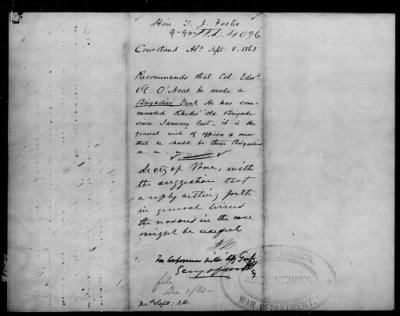 Hon T. J. Foster
4096
Courtland Ala Sept. 8. 1863
Recommends that Col. Edwd.
A. O'Neal be made a
Brigadier Genl. He has com-
manded Rhodes' Old Brigade
since January last - it is the
general wish of officers & men
that he should be their Brigadier
Secty of War, with
the suggestion that
a reply setting forth
in general terms
the reasons in the case
might be useful
file
WAR DEPARTMENT.